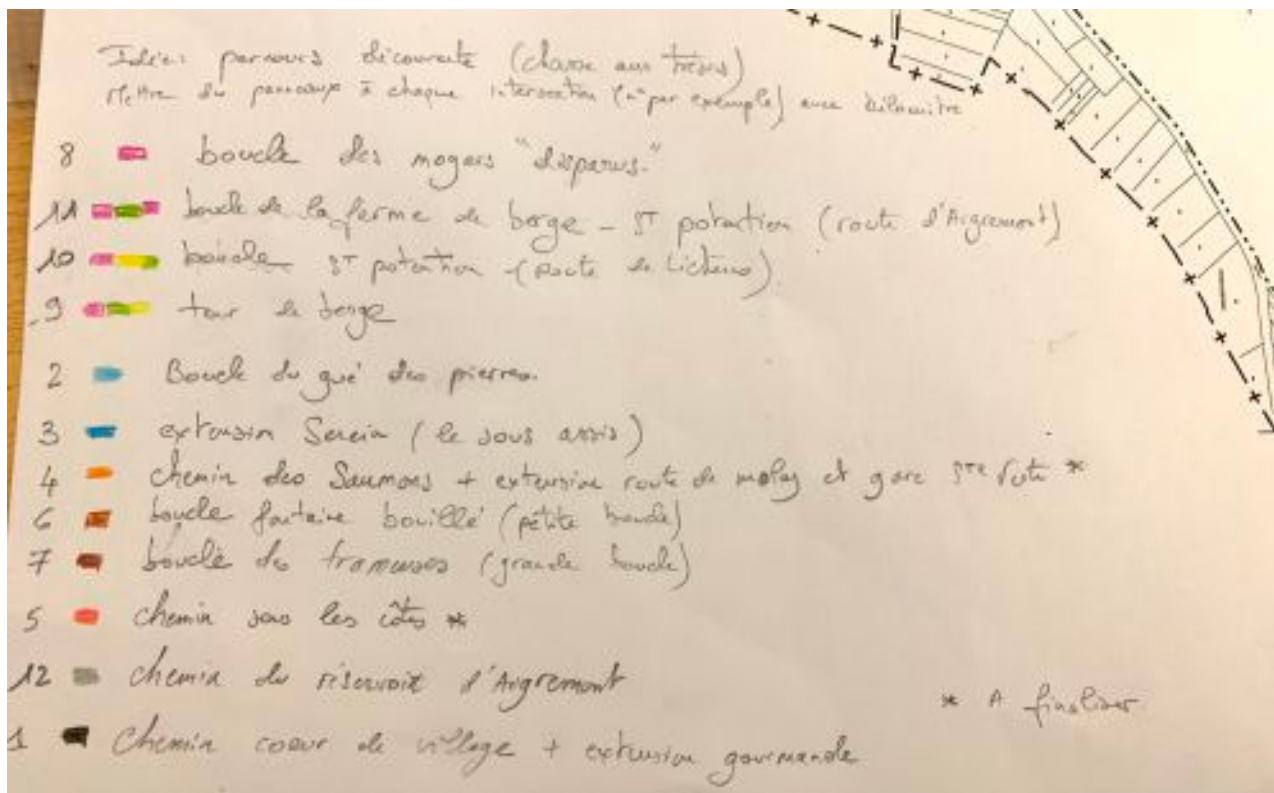 Idée: parcours découverte (chasse aux trésors)
Mettre des panneaux à chaque intersection (n° par exemple) avec kilomètre
8 boucle des mogers "disparus"
11 boucle de la ferme de berge - ST potentien (route d'Aigremont)
10 boucle ST potentien (route de Lichères)
9 tour de berge
2 Boucle du gué des pierres.
3 extension Serein (le sous assis)
4 chemin des Saumons + extension route de molay et gare Ste Vertu *
6 boucle fontaine bouillé (petite boucle)
7 boucle des (grande boucle)
5 chemin sous les côtes *
12 chemin du réservoir d'Aigremont
* A finaliser
1 Chemin coeur de village + extension gourmande